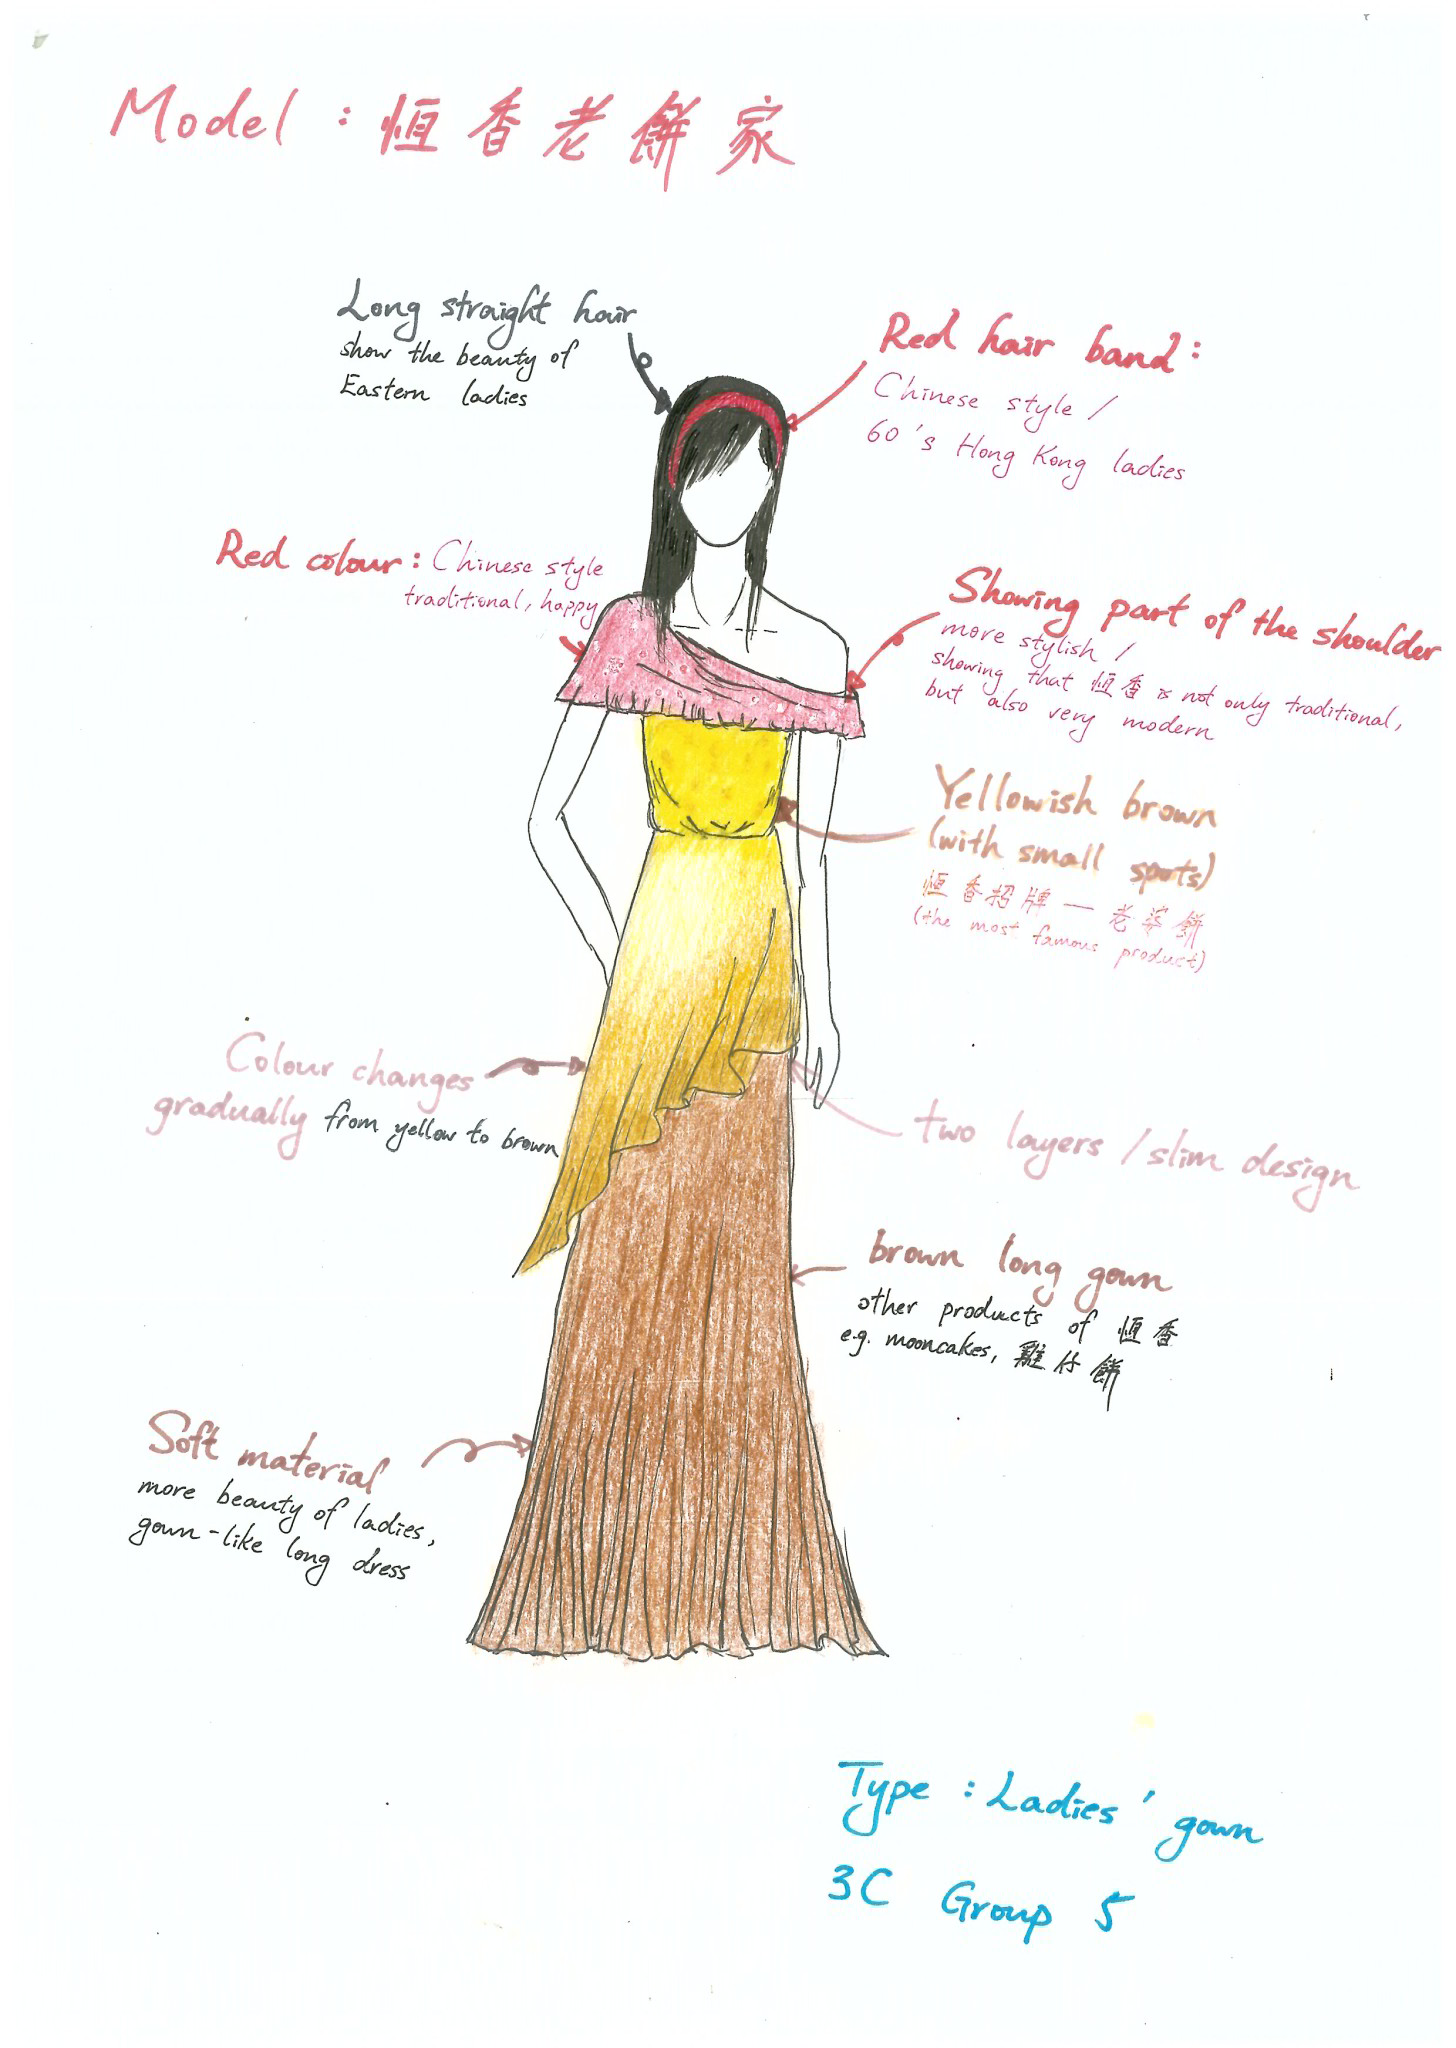 Model : 恆香老餅家
Long straight hair
show the beauty of
Eastern ladies
Red hair band :
Chinese style /
60's Hong Kong ladies
Red colour : Chinese style
traditional, happy
Showing part of the shoulder
more stylish /
showing that 恆香 is not only traditional,
but also very modern
Yellowish brown
(with small spots)
恆香招牌 — 老婆餅
(the most famous product)
Colour changes
gradually from yellow to brown
two layers / slim design
brown long gown
other products of 恆香
e.g. mooncakes, 雞仔餅
Soft material
more beauty of ladies,
gown-like long dress
Type : Ladies' gown
3C Group 5